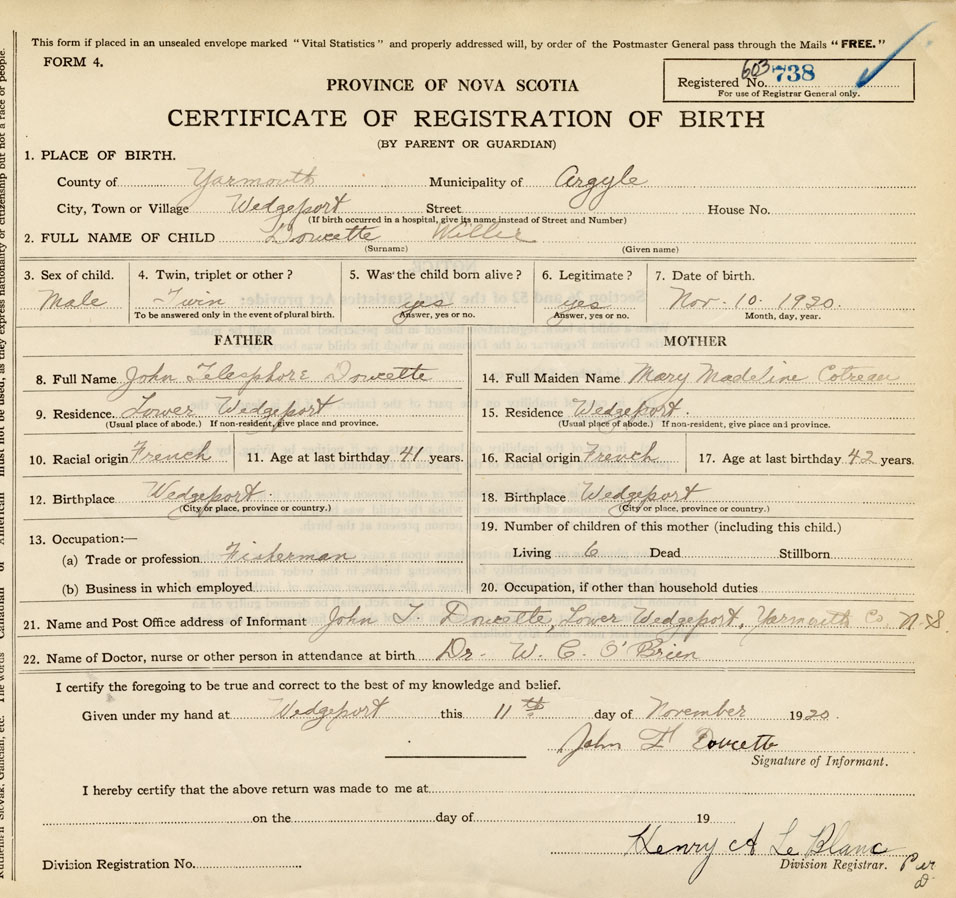 This form if placed in an unsealed envelope marked "Vital Statistics" and properly addressed will, by order of the Postmaster General pass through the Mails "FREE."
FORM 4.
Registered No. 603 738
For use of Registrar General only.
PROVINCE OF NOVA SCOTIA
CERTIFICATE OF REGISTRATION OF BIRTH
(BY PARENT OR GUARDIAN)
1. PLACE OF BIRTH.
County of Yarmouth Municipality of Argyle
City, Town or Village Wedgeport Street House No.
(If birth occurred in a hospital, give its name instead of Street and Number)
2. FULL NAME OF CHILD Doucette Willie
(Surname) (Given name)
3. Sex of child. 4. Twin, triplet or other? 5. Was the child born alive? 6. Legitimate? 7. Date of birth.
Male Twin yes yes Nov. 10. 1920.
To be answered only in the event of plural birth. Answer, yes or no. Answer, yes or no. Month, day, year.
FATHER MOTHER
8. Full Name John Telesphore Doucette 14. Full Maiden Name Mary Madeline Cotreau
9. Residence. Lower Wedgeport 15. Residence Wedgeport.
(Usual place of abode.) If non-resident, give place and province. (Usual place of abode.) If non-resident, give place and province.
10. Racial origin French 11. Age at last birthday 41 years. 16. Racial origin French 17. Age at last birthday 42 years.
12. Birthplace Wedgeport. 18. Birthplace Wedgeport
(City or place, province or country.) (City or place, province or country.)
13. Occupation:— 19. Number of children of this mother (including this child.)
(a) Trade or profession Fisherman Living 6 Dead Stillborn
(b) Business in which employed 20. Occupation, if other than household duties
21. Name and Post Office address of Informant John T. Doucette, Lower Wedgeport, Yarmouth Co. N.S.
22. Name of Doctor, nurse or other person in attendance at birth Dr. W. C. O'Brien
I certify the foregoing to be true and correct to the best of my knowledge and belief.
Given under my hand at Wedgeport this 11th day of November 1920.
John T Doucette
Signature of Informant.
I hereby certify that the above return was made to me at
on the day of 19
Henry A Le Blanc
Division Registration No. Division Registrar. Per